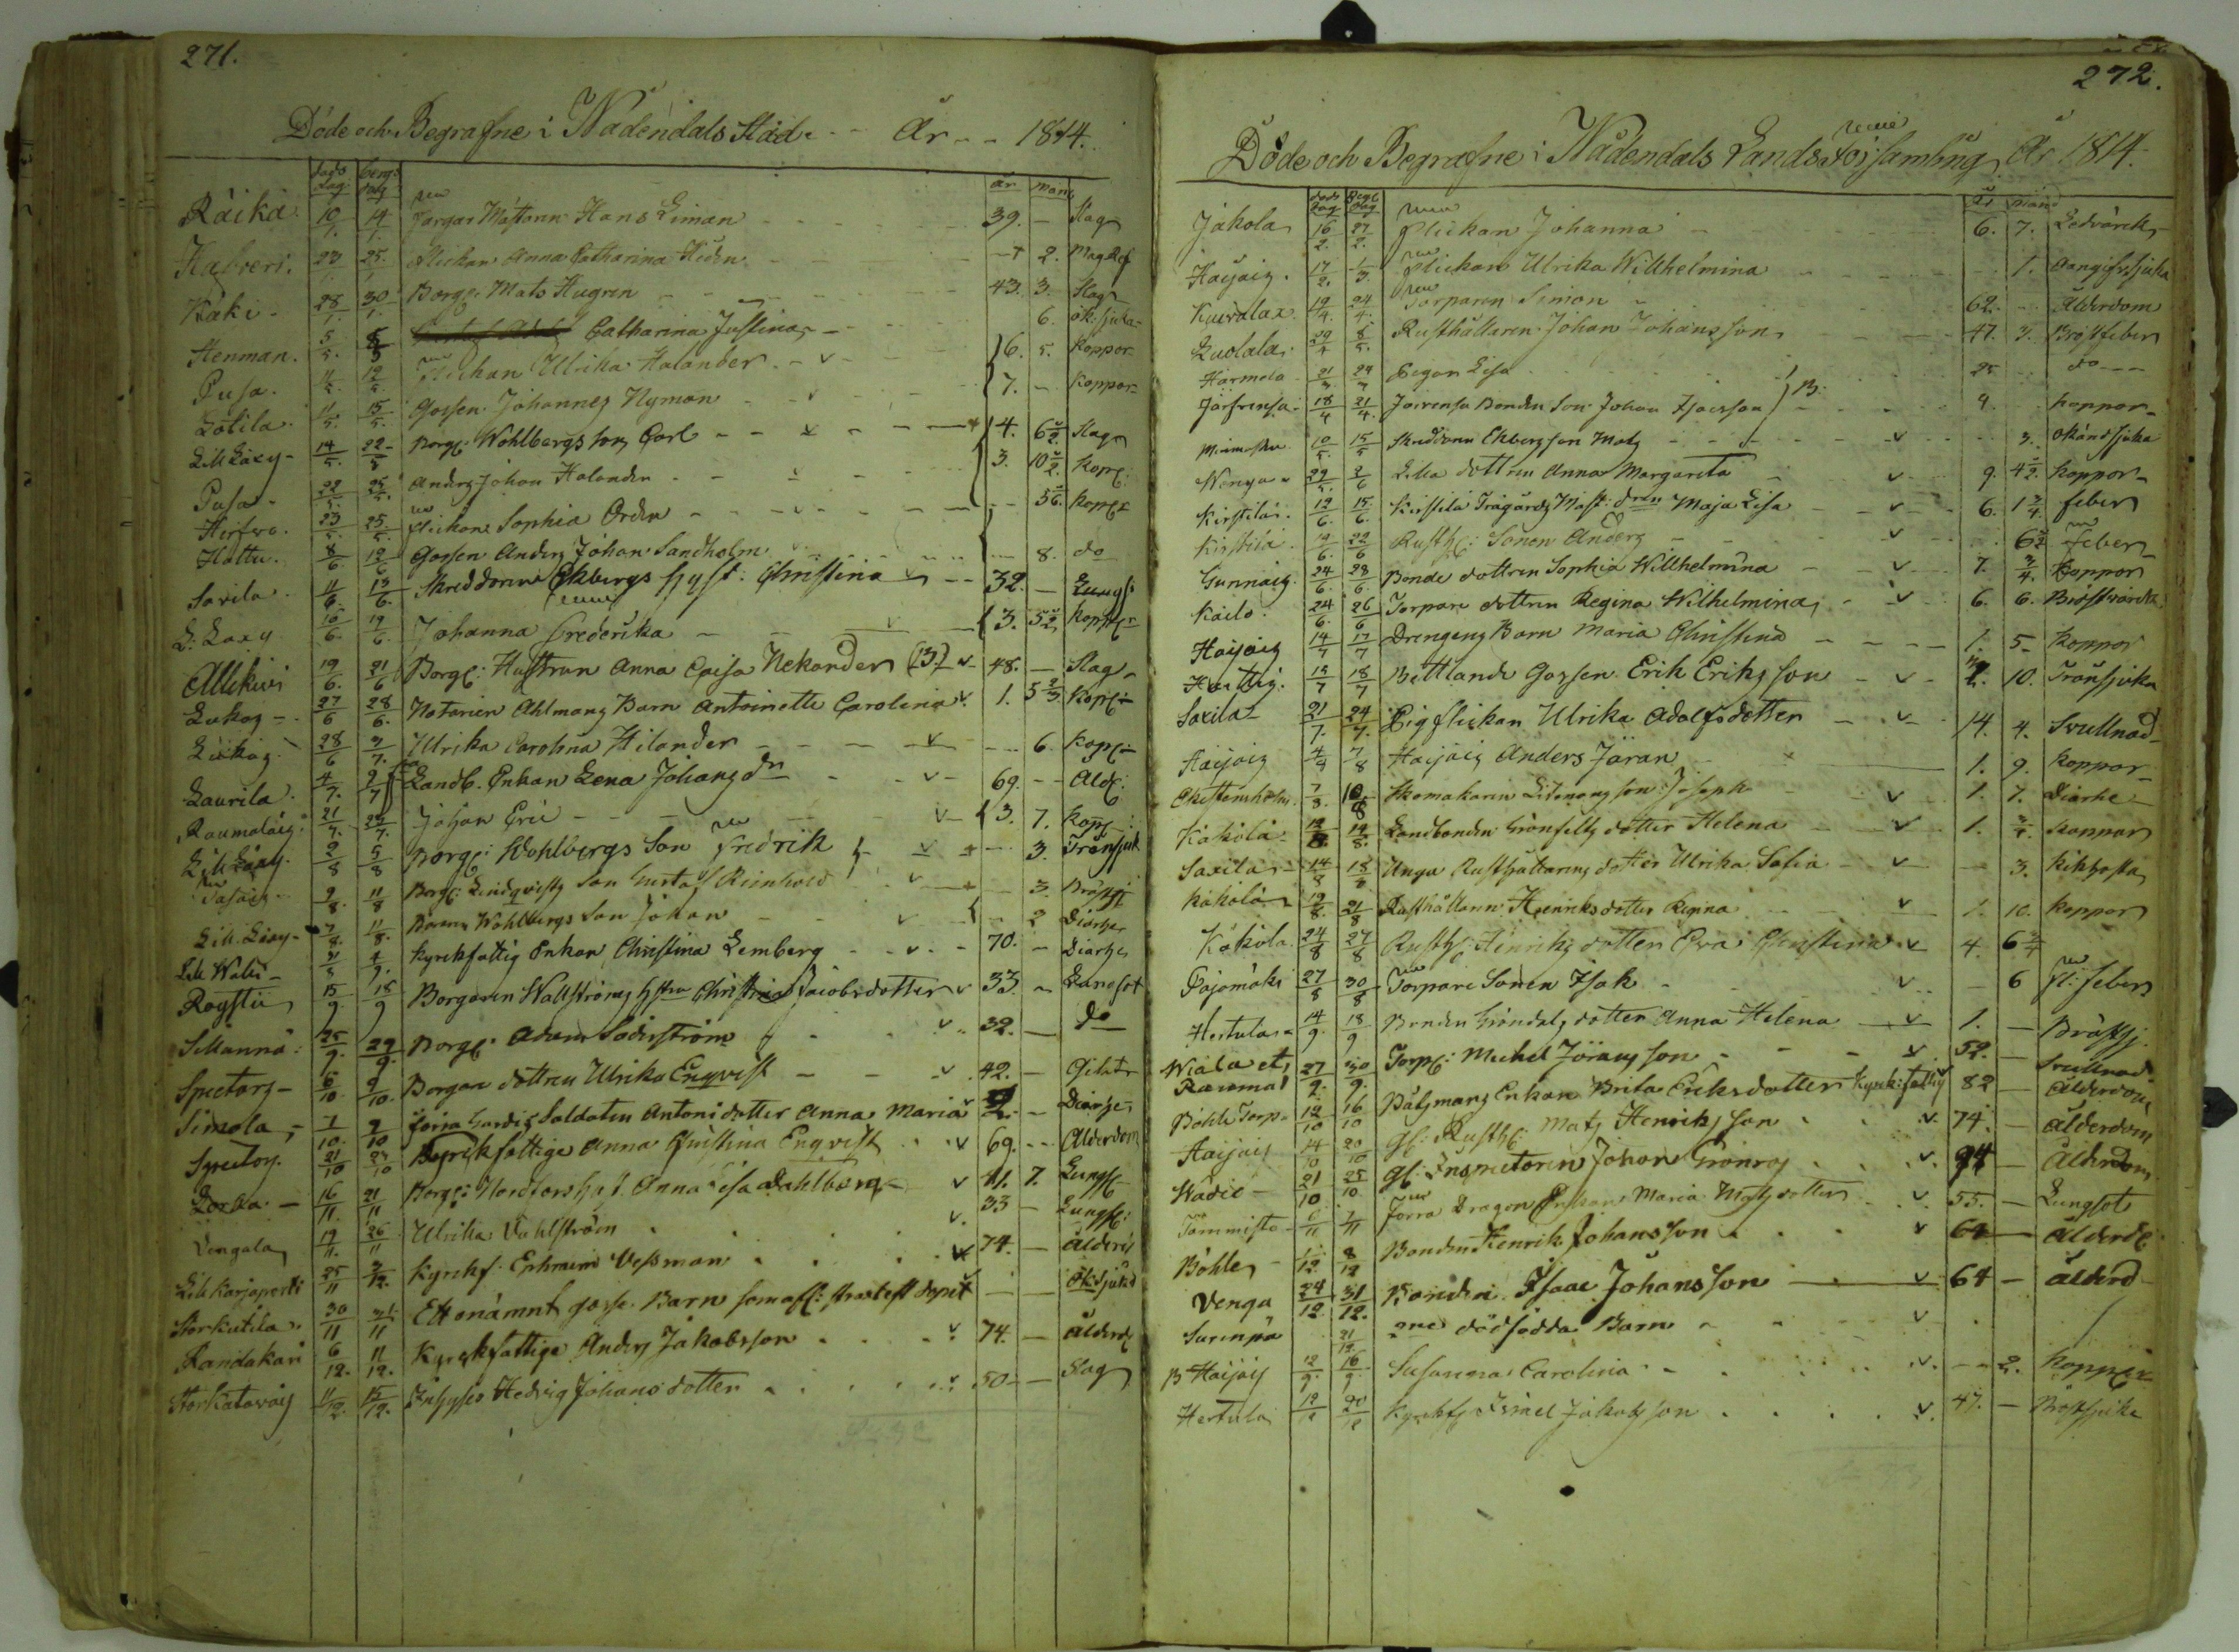 271.
Döde och Begrafne i Nådendals Stad. År 1814.
döds dag. begr: dag år mån
Räikä. 10/1. 14/1. Färgar Mästaren Hans Liman 39. — Slag
Hafveri. 23/1. 25/1. Flickan Anna Catharina Hedin — 2. Magref
Käki. 28/1. 30/1. Borg: Mats Hugren 43. 3. Slag
Henman. 5/5. 8/5 Catharina Justina 6. ok: sjuka
Pusa. 11/5. 12/5. Flickan Ulrika Halander v 6. 5. Koppor
Lötila. 11/5. 15/5. Gossen Johannes Nyman v 7. — Koppor
Lill Läxy 14/5. 22/5 Borg: Wohlbergs son Carl v 4. 6 1/2 Slag
Pusa 22/5. 25/5. Anders Johan Halander v 3. 10 1/2 Kop:
Herfvo. 23/5. 25/5. Flickan Sophia Orden v — 5/6. Kop:
Hattu. 8/6 12/6 Gossen Anders Johan Sandholm — 8. do
Saxila 11/6. 13/6. Skreddaren Ekbergs hust: Christina v 32. — Lungs:
L. Läxy 16/6. 19/6. Johanna Frederika v 3. 5 1/2 Kopp:
Allikivi 19/6. 21/6 Borg: Hustrun Anna Caisa Nekander (13) v 48. — Slag
Lukas 27/6 28/6. Notarien Ahlmans Barn Antoinette Carolina v. 1. 5 2/3 Kop:
Lukas 28/6 3/7. Ulrika Carolina Hilander v — 6 Kop:
Laurila. 4/7. 9/7 Landb. Enkan Lena Johans dr v 69. — Ald:
Raumaläis. 21/7. 24/7. Johan Eric v 3. 7. Kop:
Lill Läxy. 2/8 5/8 Borg: Wohlbergs Son Fredrik v — 3. Trånsjuk
9/8. 11/8 Borg: Lindqvists Son Gustaf Reinhold v — 3. Bröstsj
Lill. Läxy 7/8. 11/8. Borg: Wohlbergs Son Johan v — 2 Diarhe
Lill Wäli 31/8 4/9. Kyrckfattig Enkan Christina Lemberg v 70. — Diarhe
Roystin 15/9 18/9 Borgaren Wallströms hstru Christina Jacobsdotter v 33. — Lungsot
Sillannä: 25/9. 29/9. Borg: Adam Söderström v 32. — do
Spectors 6/10 9/10. Borgare dottren Ulrika Enqvist v 42. —
Simola 7/10. 9/10 Förra Gardis Soldaten Antoni dotter Anna Maria v — Diarhe
Spector. 21/10 23/10 Kyrckfattige Anna Christina Enqvist v 69. — Alderdom
16/11. 21/11 Borg: hust. Anna Lisa Dahlberg v 41. 7. Lungs:
Vengala 19/11. 26/11 Ulrika Dahlström v. 33 — Lungs:
Lill Karjaperti 25/11 2/12. Kyrckf. Ephraim Wessman v 74. — ålderd
Storkutila. 30/11 31/11 Ett onämnt gosse Barn som afl: straxt eft dopet — — ok: sjukd
Randakari 6/12. 11/12. Kyrckfattige Anders Jakobsson v. 74. — ålderd
Storkatavais 11/12. 15/12. Inhyses Hedvig Johansdotter v 50 — Slag
272.
Döde och Begrafne i Nådendals Lands Församling År 1814.
döds dag Begr: dag år mån
Jäkola 16/2. 27/2. Flickan Johanna 6. 7. Ledvärck
Haijais. 17/2. 1/3. Flickan Ulrika Willhelmina 1. oangifv: sjuka
Kuivalax 19/4. 24/4. Torparen Simon 62. — Ålderdom
Luolala 29/4 8/5. Rusthållaren Johan Johansson 47. 3. Bröstfeber
Harmola 21/3. 24/3 Pigan Lisa 25 do
Järfvensa 18/4 21/4. Järvensa Bonden Son Johan Isacsson } B. 9. Koppor
10/5. 15/5 Skreddaren Ekbergs son Mats v 3. okändsjuka
Wenga 29/5. 2/6 Lilla dottren Anna Margareta v 9. 4 1/2. Koppor
Kirstila. 12/6. 15/6. Kirstila Trägårds Mäst: dren Maja Lisa v 6. 1 3/4 feber
Kirstila 19/6. 22/6 Rusth: Sonen Anders v 6 1/2 feber
Gunnais. 24/6. 28/6 Bonde dottren Sophia Willhelmina v 7. 3/4. Koppor
Kailo. 24/6. 26/6 Torpare dottren Regina Wilhelmina v 6. 6. Bröstvärck
Haijais 14/7 17/7 Drengens Barn Maria Christina 1. 5 Koppor
15/7 18/7 Bettlande Gossen Erik Eriksson v 10. Trånsjuka
Saxila 21/7. 24/7. Pigflickan Ulrika Adolfsdotter v 14. 4. Svullnad
Haijais 4/8 7/8 Haijais Anders Jöran 1. 9. Koppor
7/8. 10/8 Skomakaren son Joseph v 1. 7. Diarhe
Käkölä 12/8. 19/8. Landbonden Grönfelts dotter Helena v 1. 3/4. Koppor
Saxila 14/8 18/8 Unga Rusthållarens dotter Ulrika Sofia v 3. Kikhosta
Käkölä 19/8. 21/8 Rusthållaren Henriks dotter Regina v 1. 10. Koppor
Käkola 24/8 27/8 Rusth: Henriks dotter Eva Christina v 4. 6 3/4
Pajamäki 27/8 30/8 Torpare Sonen Isak v — 6 feber
Hertula 14/9. 18/9 Bonden Gröndals dotter Anna Helena v 1. — Bröstsj.
Wiala et Raumal 27/9. 30/9. Torp: Michel Jöransson v 52. — Svullnad
Böhle Torp 12/10 16/10 Båtsmans Enkan Brita Eriksdotter Kyrk: fattig v 82 — ålderdom
Haijais 14/10 20/10 Gl: Rusth: Mats Henriksson v 74. — ålderdom
Wadic 21/10 25/10. Gl: Inspectoren Johan Grönros v. 94 — ålderdom
Tammisto 6/11 7/11 Förra Dragon Enkan Maria Matsdotter v. 55. — Lungsot
Böhle 1/12. 8/12 Bonden Henrik Johansson v 62 — ålderd:
Venga 24/12 31/12. Bonden Isaac Johansson v 64 — ålderd
Surinpä 21/12. 2ne dödfödda Barn v
B Haijais 12/9. 16/9. Susanna Carolina v. — 2. Koppor
Hertula 19/12 20/12 Kyrckfs Israel Jakobsson v. 47. — Bröstsjuka